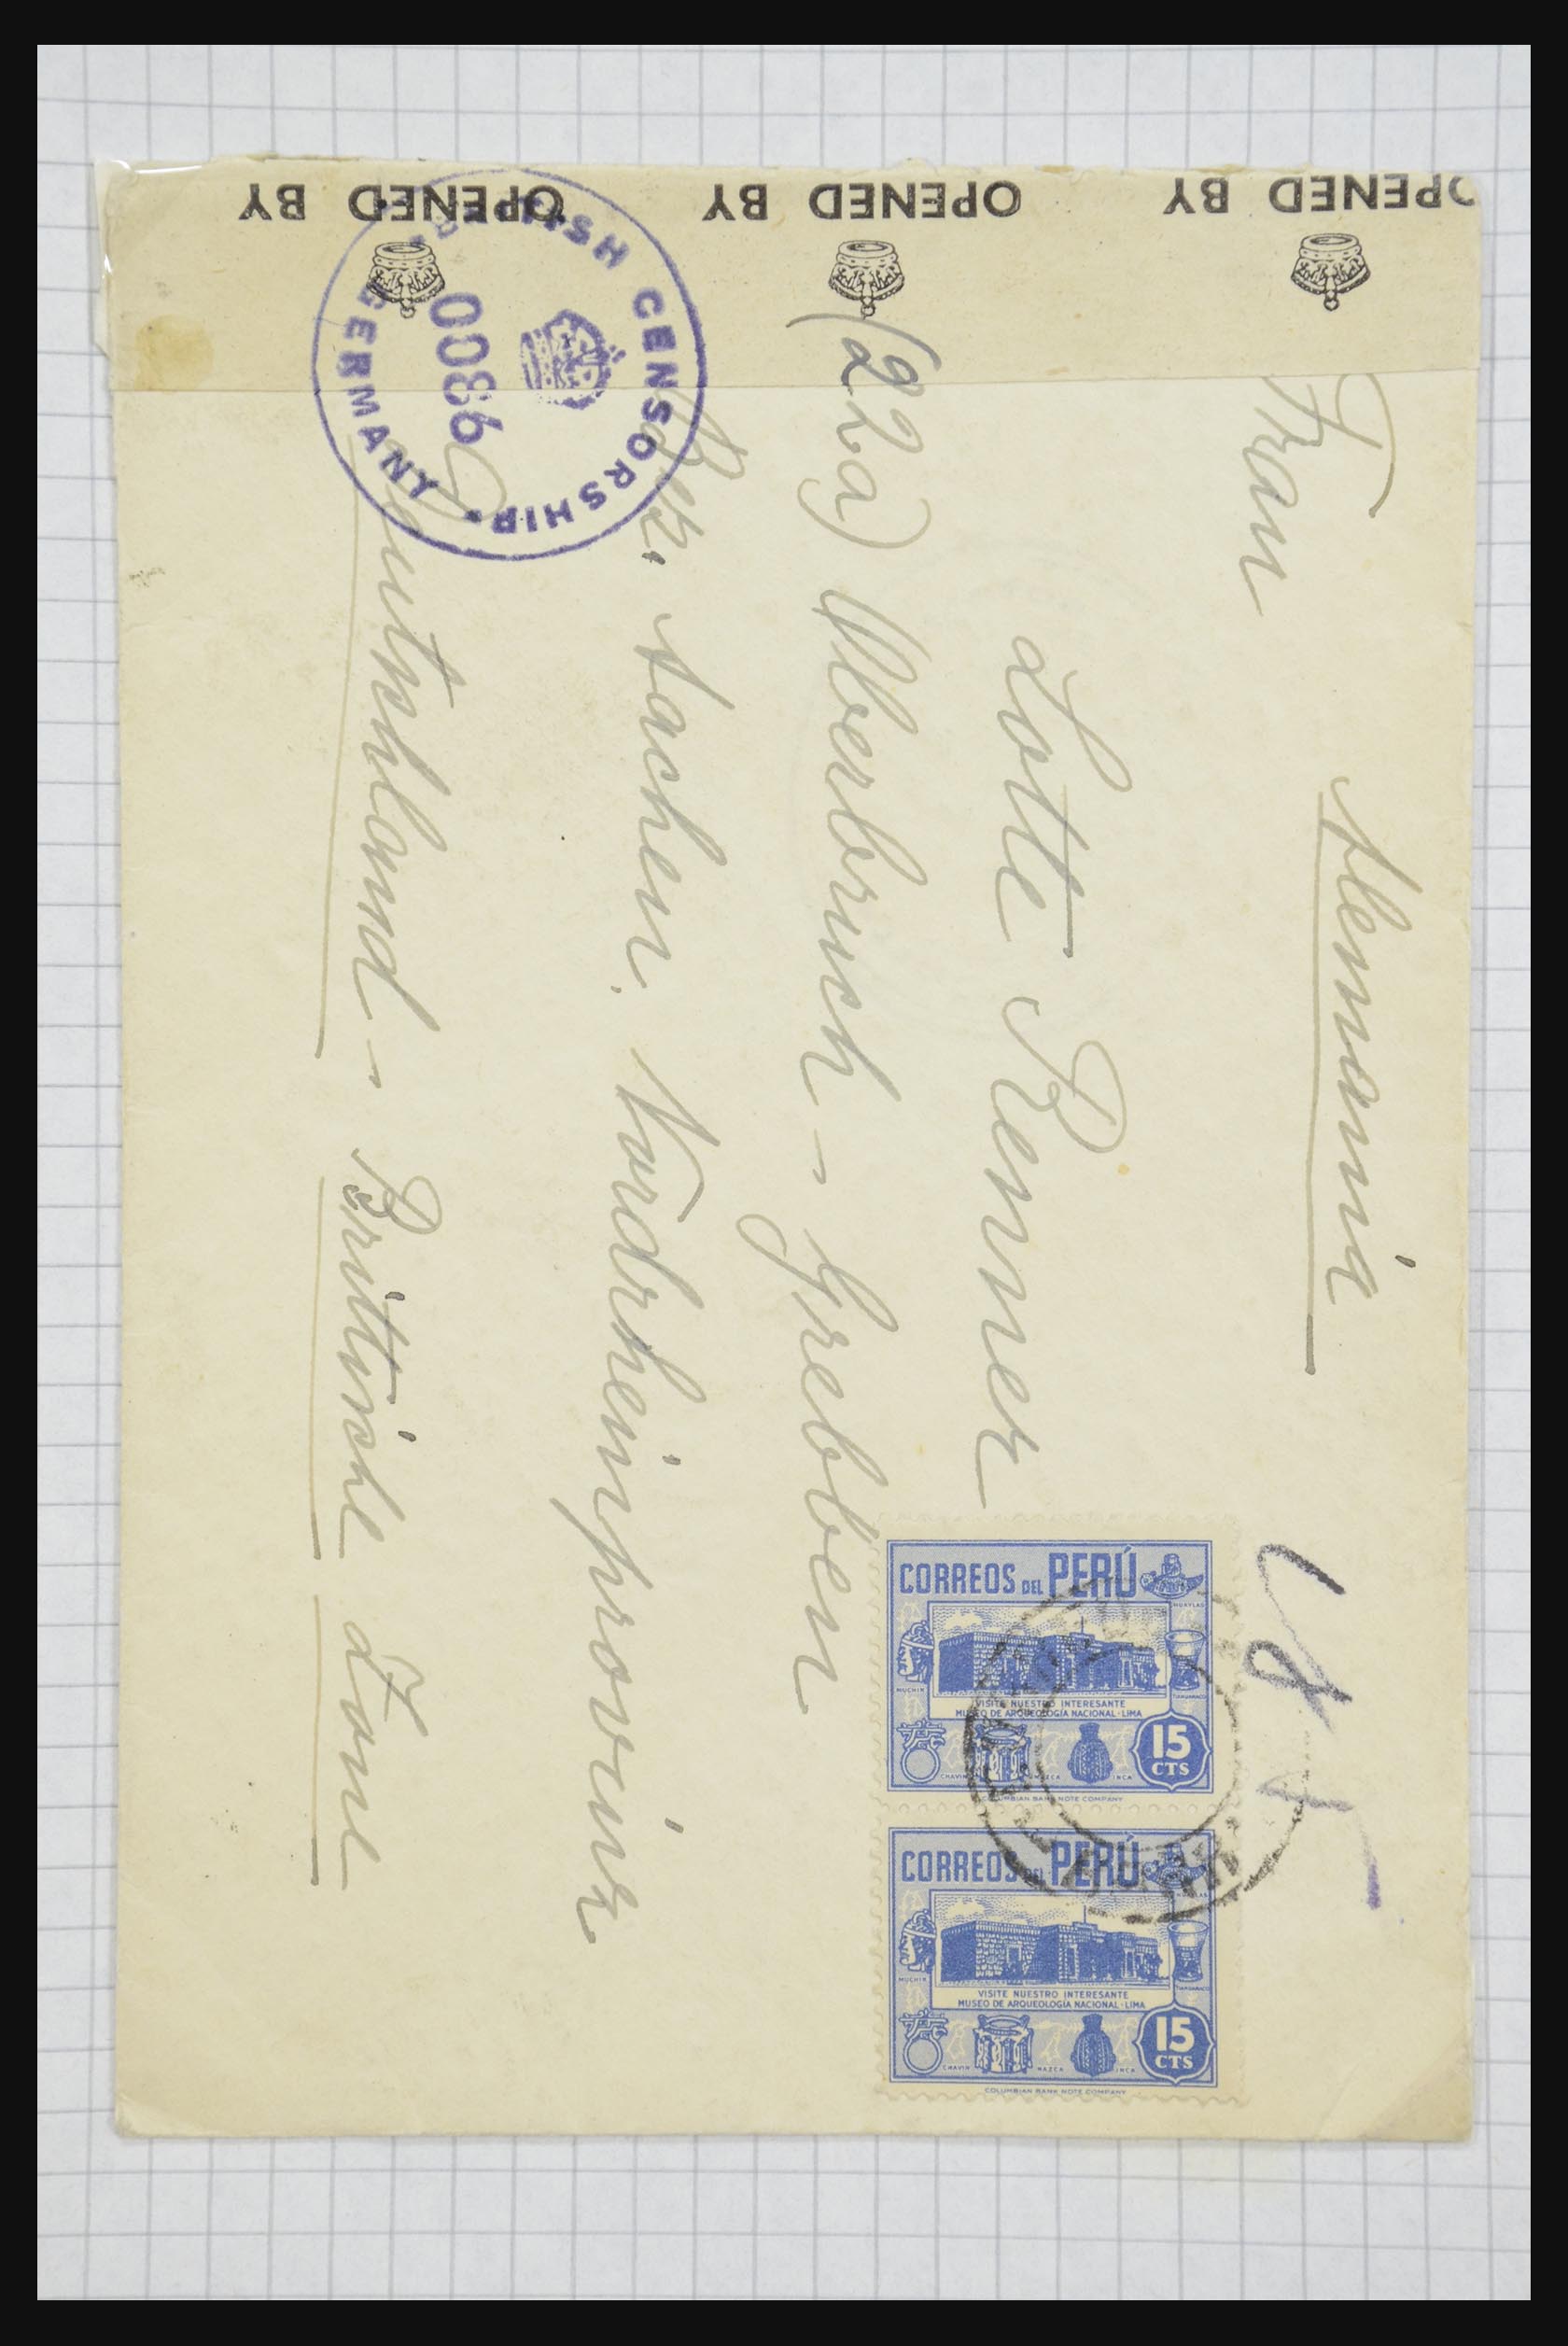 OPENED BY OPENED BY OPENED BY
BRITISH CENSORSHIP
GERMANY
9800
Alemania
Frau
Lotte Renner
(22a) Überbruch - Grebben
Bez. Aachen. Nordrheinprovinz
Deutschland - Brittische Zone
CORREOS DEL PERÚ
HUAYLAS
MUCHIK
TIAHUANACO
VISITE NUESTRO INTERESANTE
MUSEO DE ARQUEOLOGÍA NACIONAL - LIMA
15
CTS
CHAVIN
NAZCA
INCA
COLUMBIAN BANK NOTE COMPANY
CORREOS DEL PERÚ
HUAYLAS
MUCHIK
TIAHUANACO
VISITE NUESTRO INTERESANTE
MUSEO DE ARQUEOLOGÍA NACIONAL - LIMA
15
CTS
CHAVIN
NAZCA
INCA
COLUMBIAN BANK NOTE COMPANY